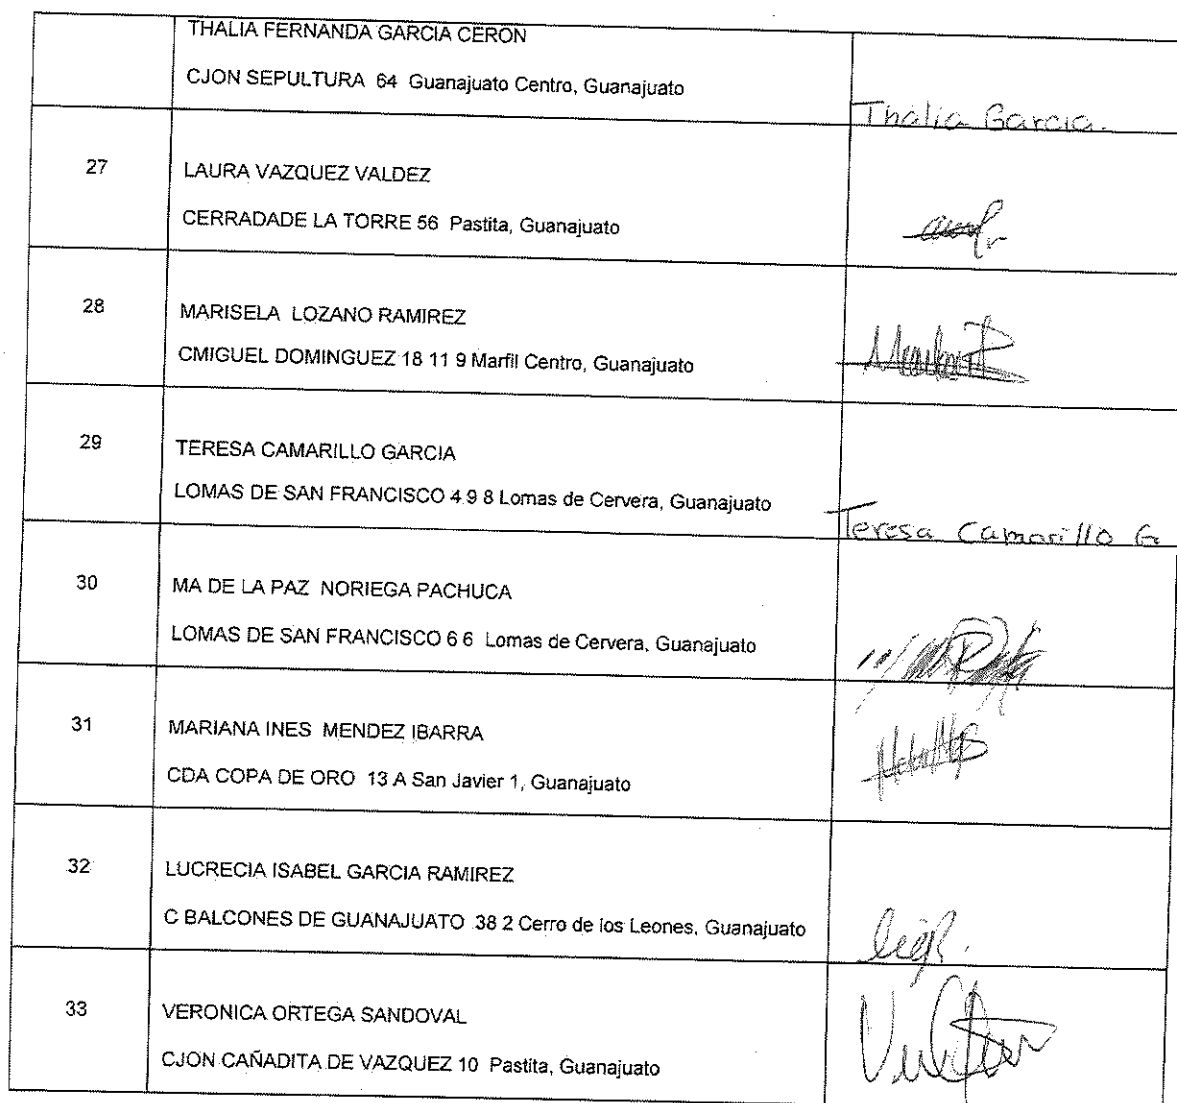 THALIA FERNANDA GARCIA CERON
CJON SEPULTURA 64 Guanajuato Centro, Guanajuato
Thalia Garcia.
27
LAURA VAZQUEZ VALDEZ
CERRADADE LA TORRE 56 Pastita, Guanajuato
28
MARISELA LOZANO RAMIREZ
CMIGUEL DOMINGUEZ 18 11 9 Marfil Centro, Guanajuato
29
TERESA CAMARILLO GARCIA
LOMAS DE SAN FRANCISCO 4 9 8 Lomas de Cervera, Guanajuato
Teresa Camarillo G
30
MA DE LA PAZ NORIEGA PACHUCA
LOMAS DE SAN FRANCISCO 6 6 Lomas de Cervera, Guanajuato
31
MARIANA INES MENDEZ IBARRA
CDA COPA DE ORO 13 A San Javier 1, Guanajuato
32
LUCRECIA ISABEL GARCIA RAMIREZ
C BALCONES DE GUANAJUATO 38 2 Cerro de los Leones, Guanajuato
33
VERONICA ORTEGA SANDOVAL
CJON CAÑADITA DE VAZQUEZ 10 Pastita, Guanajuato